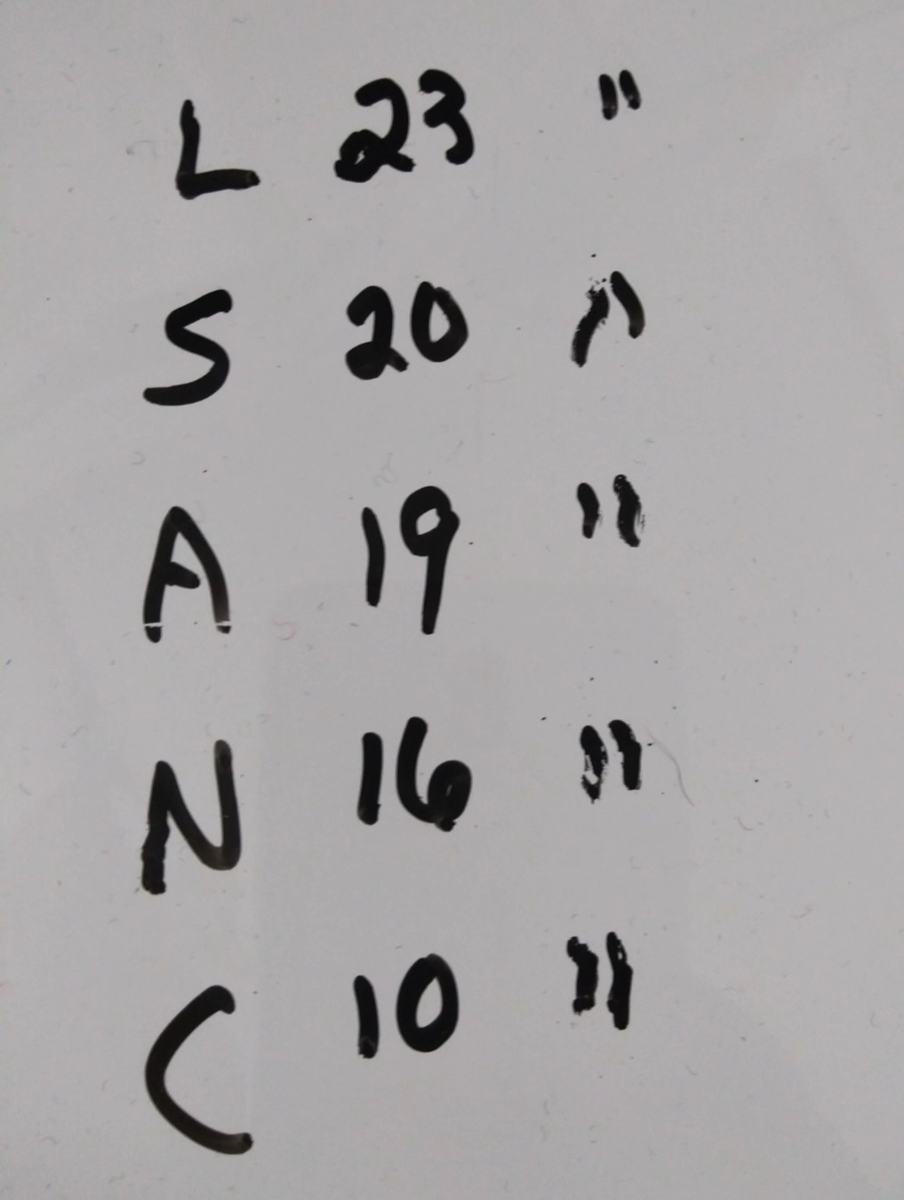 L 23 "
S 20 "
A 19 "
N 16 "
C 10 "